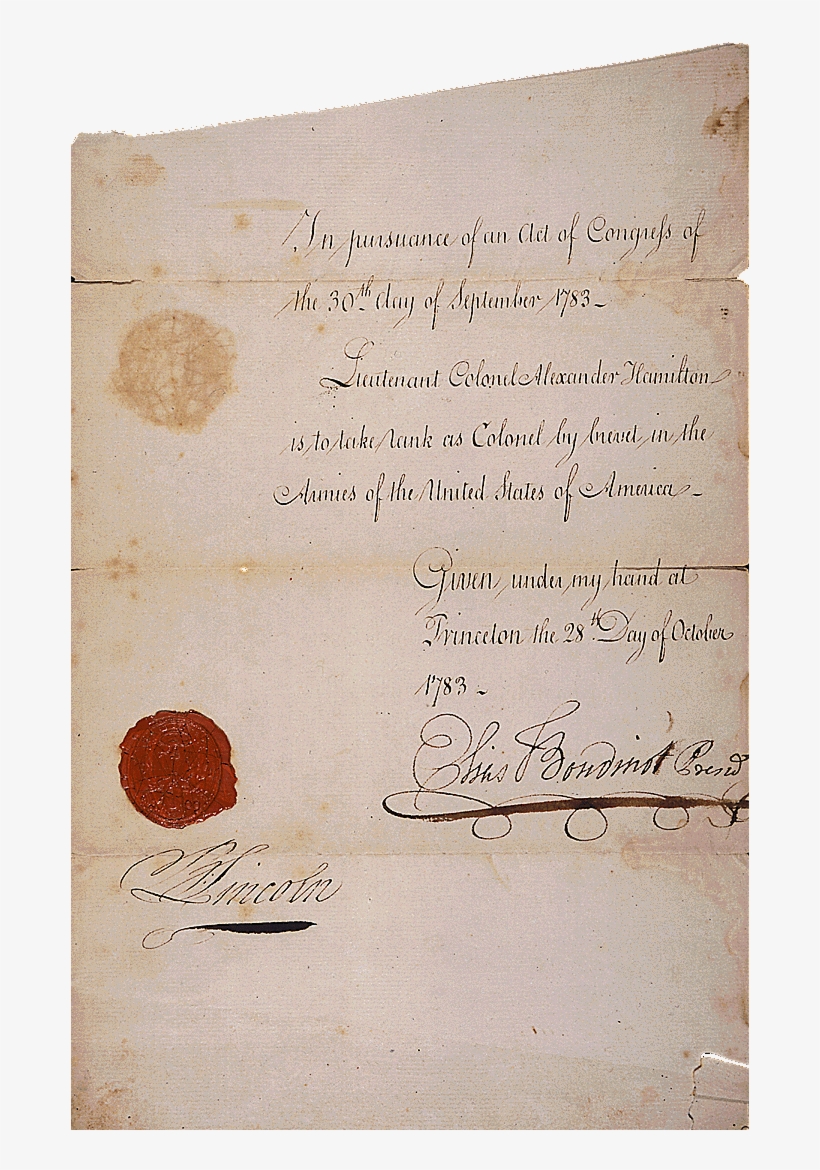 In pursuance of an Act of Congress of
the 30th day of September 1783_
Lieutenant Colonel Alexander Hamilton
is to take rank as Colonel by brevet in the
Armies of the United States of America_
Given under my hand at
Princeton the 28th Day of October
1783_
Elias Boudinot Presid
B Lincoln